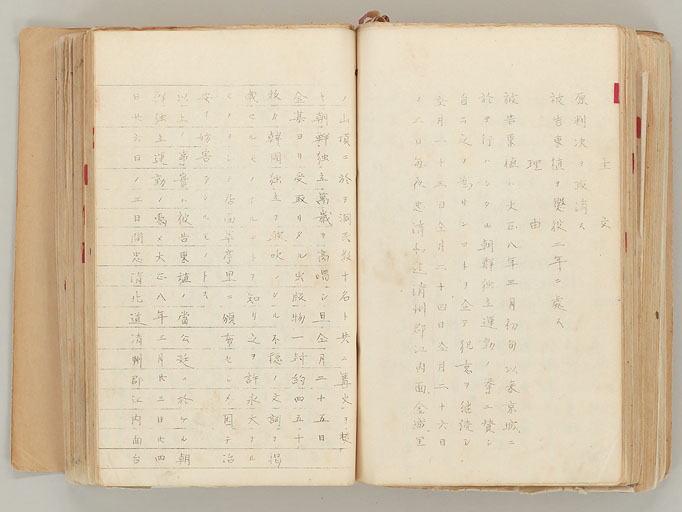 主文
原判決ヲ取消ス
被告東植ヲ懲役二年ニ處ス
理由
被告東植ハ大正八年三月初旬以来京城ニ
於テ行ハレタル朝鮮独立運動ノ挙ニ賛シ
自ラ之ヲ為サンコトヲ企テ犯意ヲ継続シ
仝月二十三日仝月二十四日仝月二十六日
ノ 日毎夜忠清北道清州郡江内面仝城里
ノ山頂ニ於テ洞民数十名ト共ニ篝火ヲ焚
キ朝鮮独立萬歳ヲ高唱シ且仝月二十五日
金集ヨリ受取リタル出版物一封約四五十
枚カ韓国独立ヲ鼓吹シタル不穏ノ文詞ヲ掲
載セルモノナルコトヲ知リ之ヲ許永大ナル
モノヲシテ居面 里ニ頒布セシメ因テ治
安ヲ妨害シタルモノトス
以上ノ事實ハ被告東植ノ當公廷ニ於ケル朝
鮮独立運動ノ為メ大正八年三月廿三日廿四
日廿六日ノ三日間忠清北道清州郡江内面台